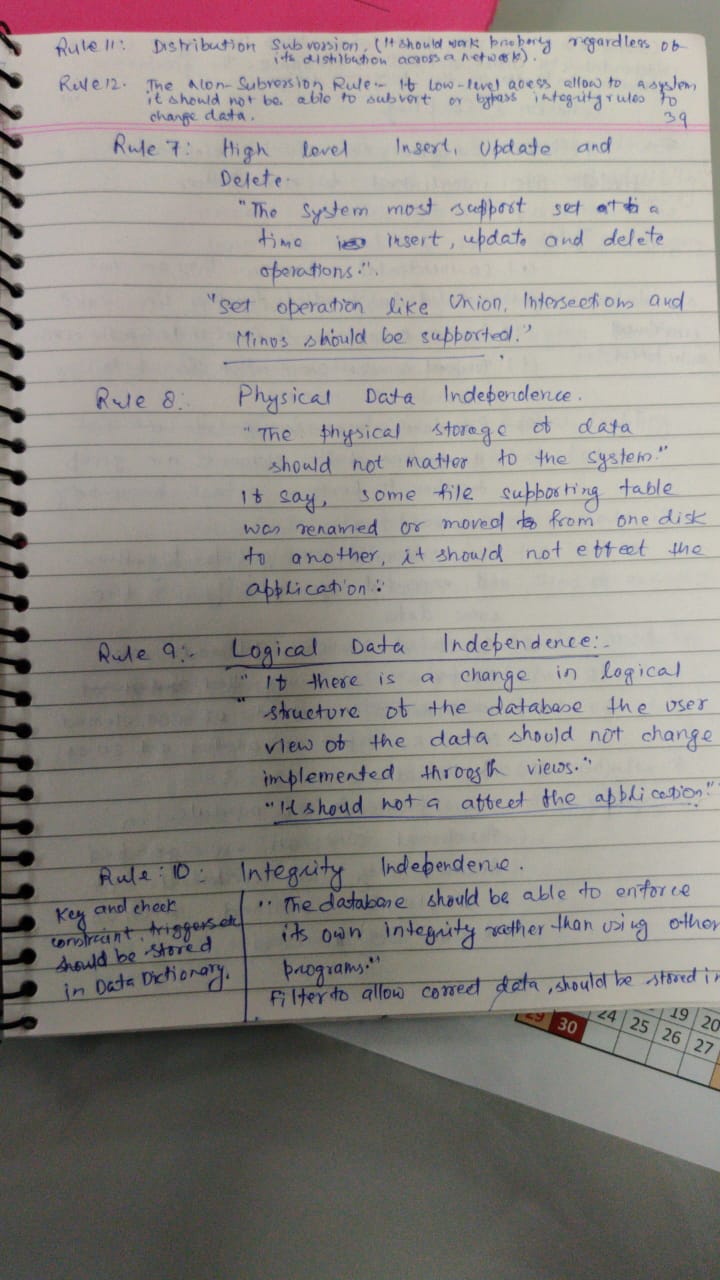 Rule 11: Distribution Subvossion. (It should work properly regardless of
its distribution across a network).
Rule 12. The Non-Subversion Rule:- If low-level acess allow to a system
it should not be able to subvert or bypass integrity rules to
change data.
39
Rule 7: High level Insert, Update and
Delete.
"The system most support set at a
time insert, update and delete
operations.".
"Set operation like Union, Intersections and
Minos should be supported."
Rule 8: Physical Data Independence.
"The physical storage of data
should not matter to the system."
If say, some file supporting table
was renamed or moved from one disk
to another, it should not effect the
application:
Rule 9:- Logical Data Independence:-
" If there is a change in logical
" structure of the database the user
view of the data should not change
implemented throogh views."
"It shoud not a affect the application."
Rule: 10: Integrity Independence.
"The database should be able to enforce
its own integrity rather than using other
programs."
Filter to allow correct data, should be stored in
Key and check
constraint, triggers etc
should be stored
in Data Dictionary.
29 30 24 25 26 27
19 20